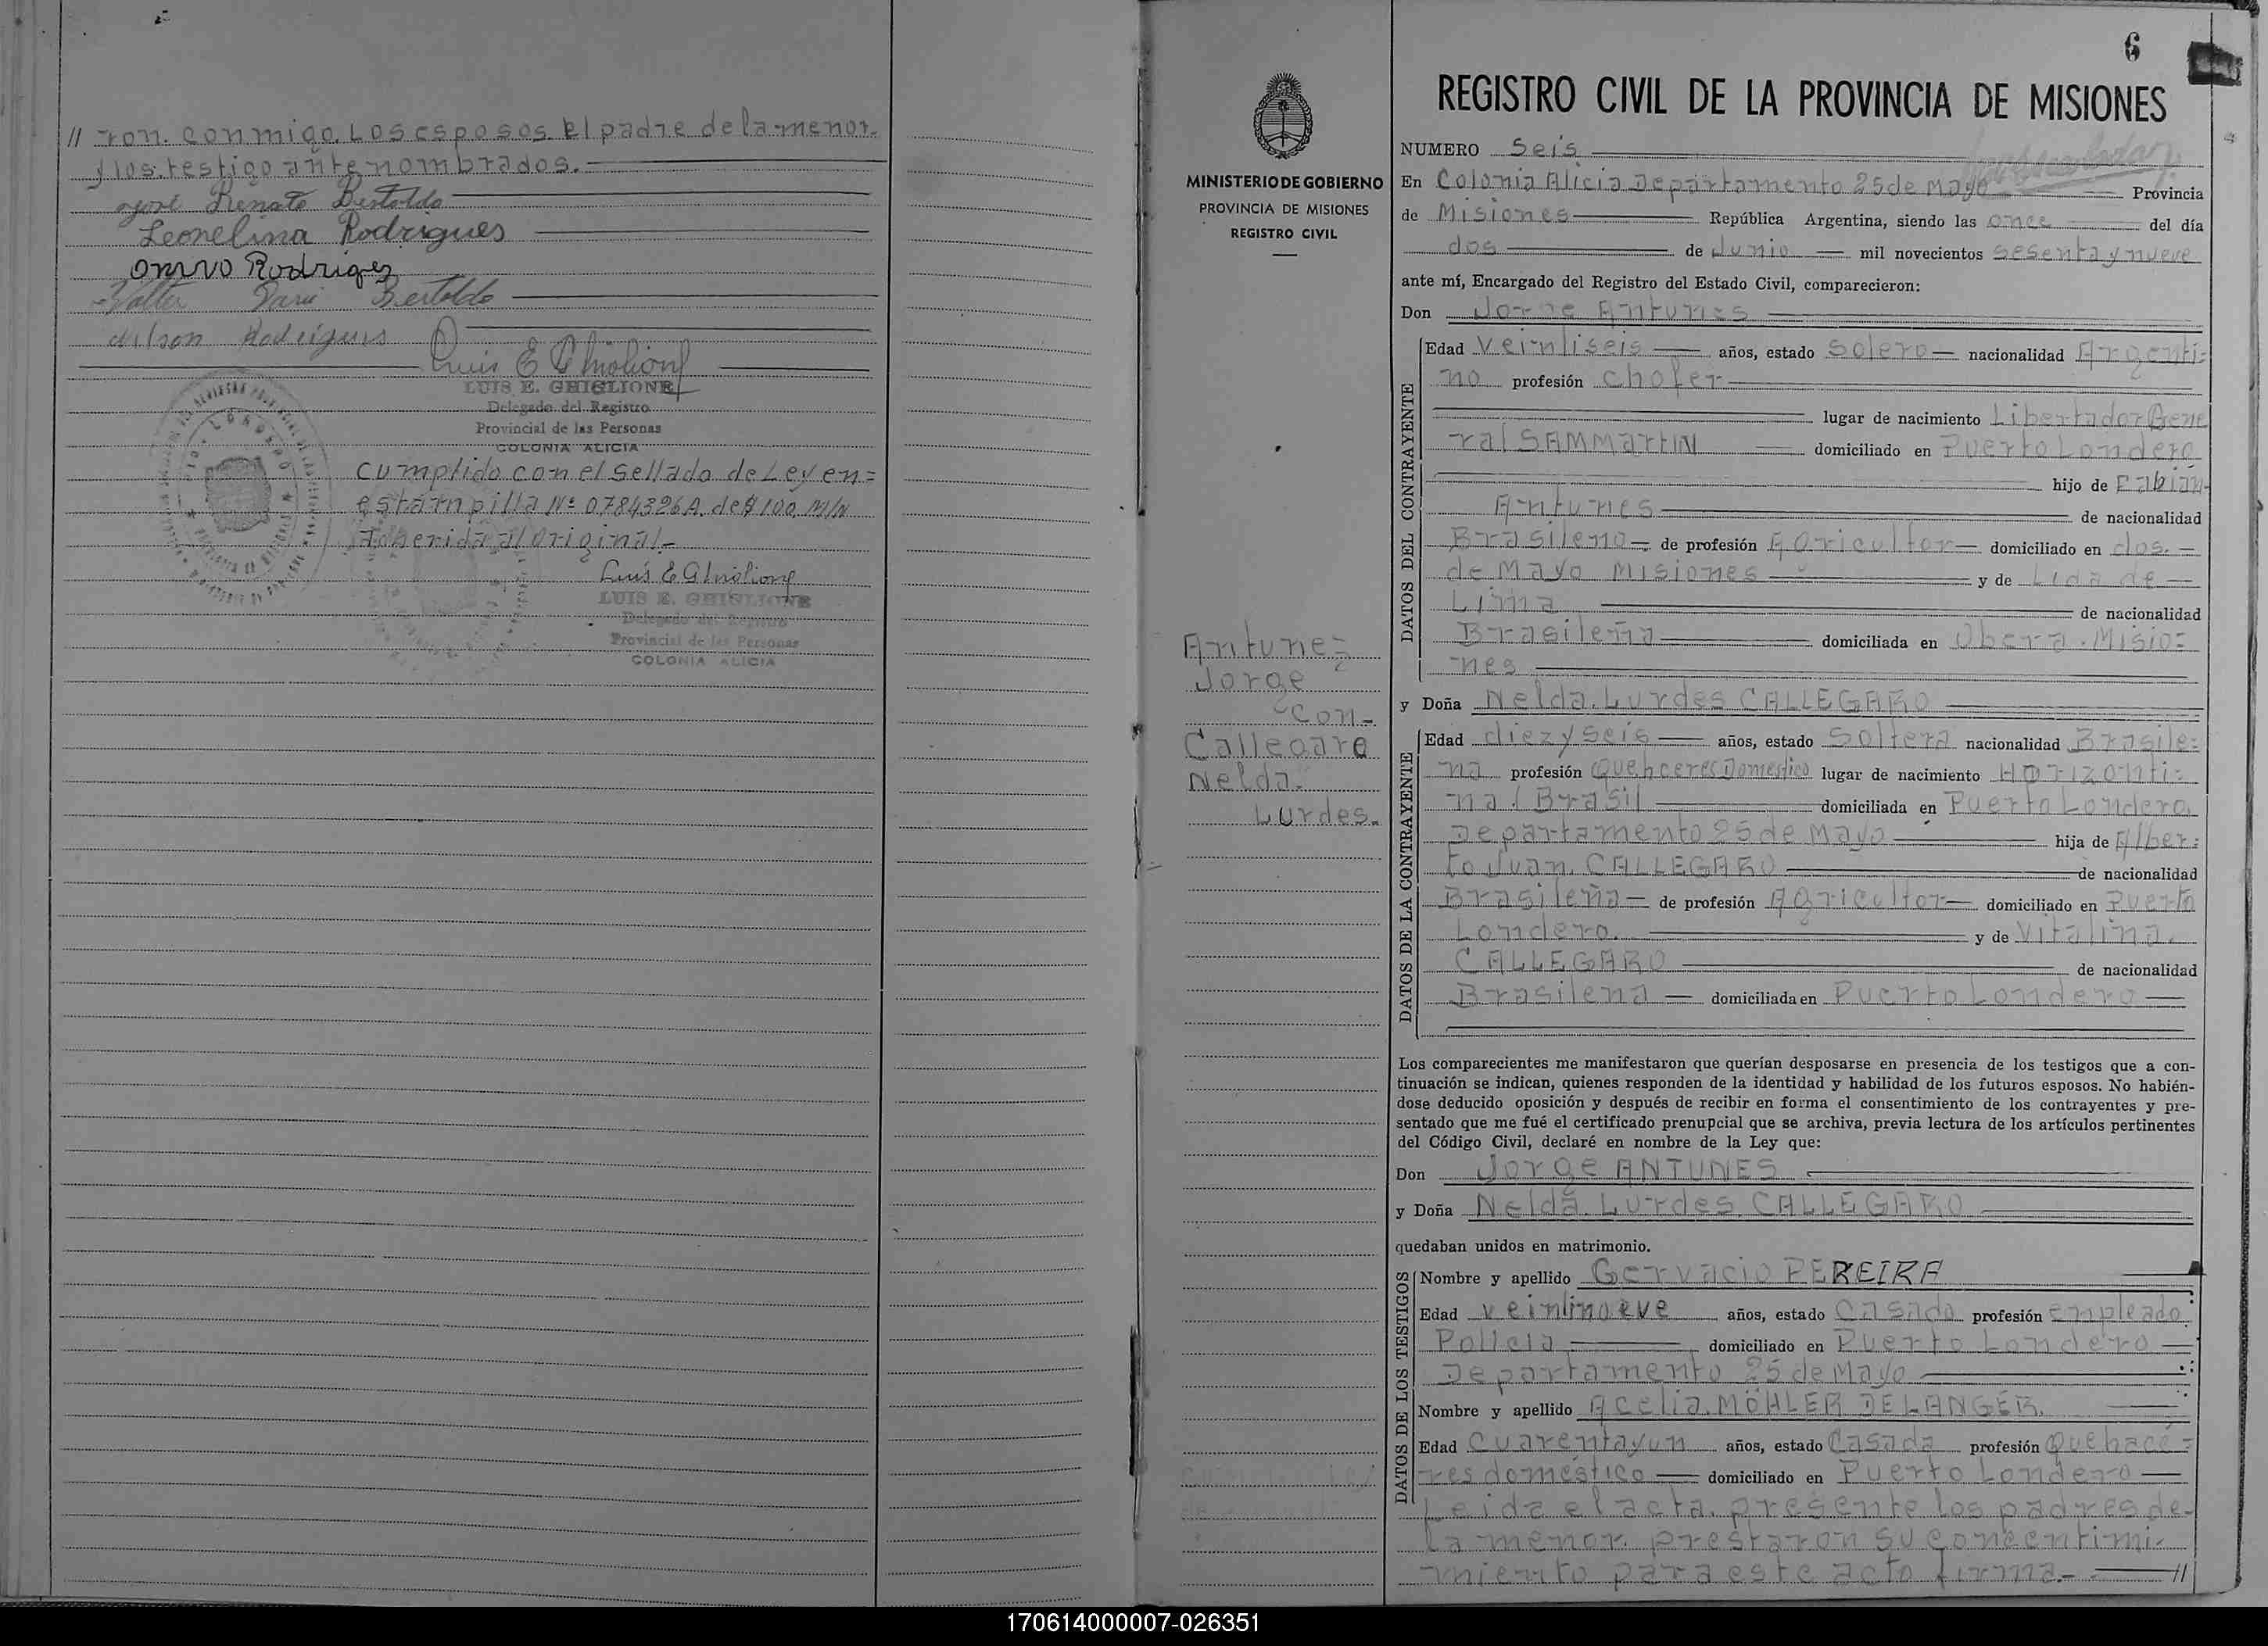 // ron. conmigo. Los esposos. El padre de la menor.
y los testigo antenombrados.
José Renato Bertoldo
Leonelina Rodrigues
Onivo Rodriguez
Valter Bertoldo
Nilson Rodrigues
Luis E Ghiglione
LUIS E. GHIGLIONE
Delegado del Registro
Provincial de las Personas
COLONIA ALICIA
cumplido con el sellado de Ley en=
estampilla Nº 0784326A. de $ 100 M/N
adherida al original.-
Luis E Ghiglione
LUIS E. GHIGLIONE
Delegado del Registro
Provincial de las Personas
COLONIA ALICIA
MINISTERIO DE GOBIERNO
PROVINCIA DE MISIONES
REGISTRO CIVIL
Antunez
Jorge
con-
Callegaro
Nelda.
Lurdes.
6
REGISTRO CIVIL DE LA PROVINCIA DE MISIONES
NUMERO Seis
En Colonia Alicia Departamento 25 de Mayo Provincia
de Misiones República Argentina, siendo las once del día
dos de Junio mil novecientos sesenta y nueve
ante mí, Encargado del Registro del Estado Civil, comparecieron:
Don Jorge Antunes
DATOS DEL CONTRAYENTE
Edad Veintiseis años, estado Solero nacionalidad Argenti=
no profesión chofer
lugar de nacimiento Libertador Gene
ral SAMMARTIN domiciliado en Puerto Londero
hijo de Fabián
Antunes de nacionalidad
Brasileno de profesión Agricultor domiciliado en dos. -
de Mayo Misiones y de Lida de
Lima de nacionalidad
Brasileña domiciliada en Obera. Misio=
nes
y Doña Nelda. Lurdes CALLEGARO
DATOS DE LA CONTRAYENTE
Edad diez y seis años, estado Soltera nacionalidad Brasile=
na profesión Quehceres Domestico lugar de nacimiento Horizonti=
na / Brasil domiciliada en Puerto Londero.
Departamento 25 de Mayo hija de Alber=
to Juan. CALLEGARO de nacionalidad
Brasileña de profesión Agricultor domiciliado en Puerto
Londero. y de Vitalina.
CALLEGARO de nacionalidad
Brasilena domiciliada en Puerto Londero
Los comparecientes me manifestaron que querían desposarse en presencia de los testigos que a con-
tinuación se indican, quienes responden de la identidad y habilidad de los futuros esposos. No habién-
dose deducido oposición y después de recibir en forma el consentimiento de los contrayentes y pre-
sentado que me fué el certificado prenupcial que se archiva, previa lectura de los artículos pertinentes
del Código Civil, declaré en nombre de la Ley que:
Don Jorge ANTUNES
y Doña Nelda. Lurdes. CALLEGARO
quedaban unidos en matrimonio.
DATOS DE LOS TESTIGOS
Nombre y apellido Gervacio PEREIRA
Edad veintinueve años, estado Casado profesión empleado
Policia domiciliado en Puerto Londero
Departamento 25 de Mayo
Nombre y apellido Acelia. MÖHLER DE LANGER.
Edad Cuarentayun años, estado Casada profesión Quehace=
res doméstico domiciliado en Puerto Londero
Leida el acta. presente los padres de-
la menor. prestaron su concentimi-
miento para este acto firma.- //
170614000007-026351